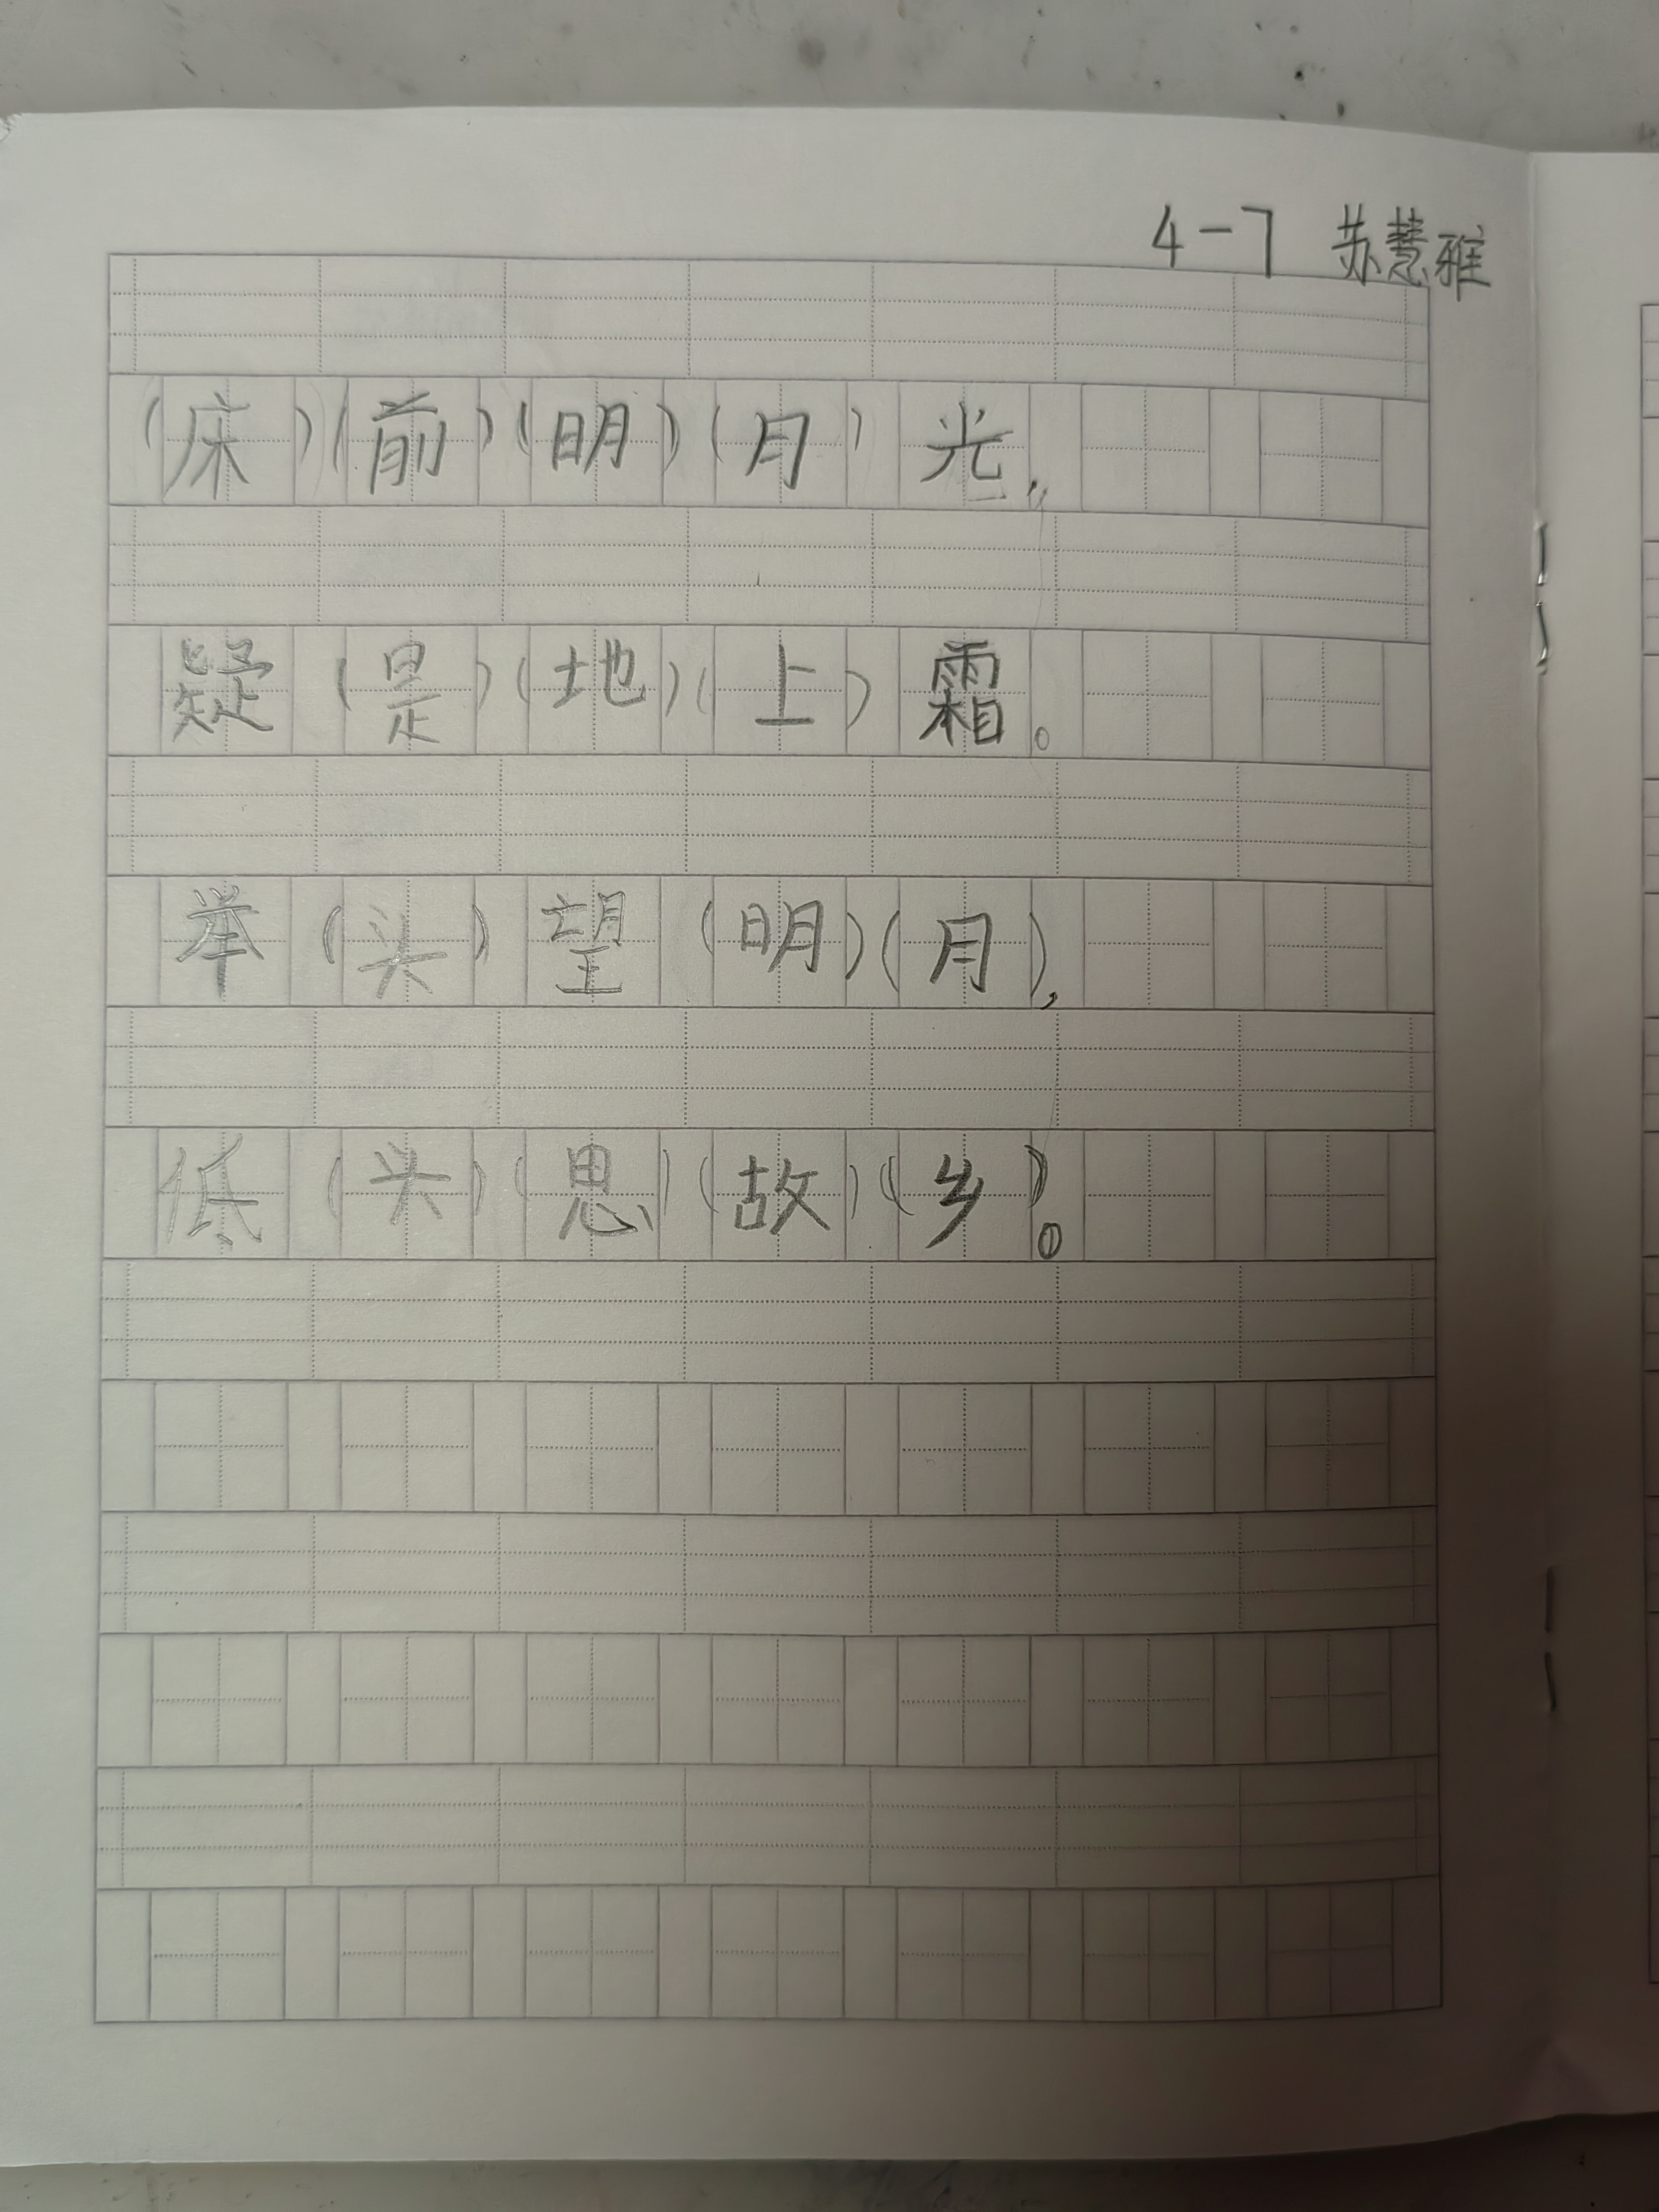 4-7 苏慧雅
(床)(前)(明)(月)光,
疑(是)(地)(上)霜。
举(头)望(明)(月),
低(头)(思)(故)(乡)。